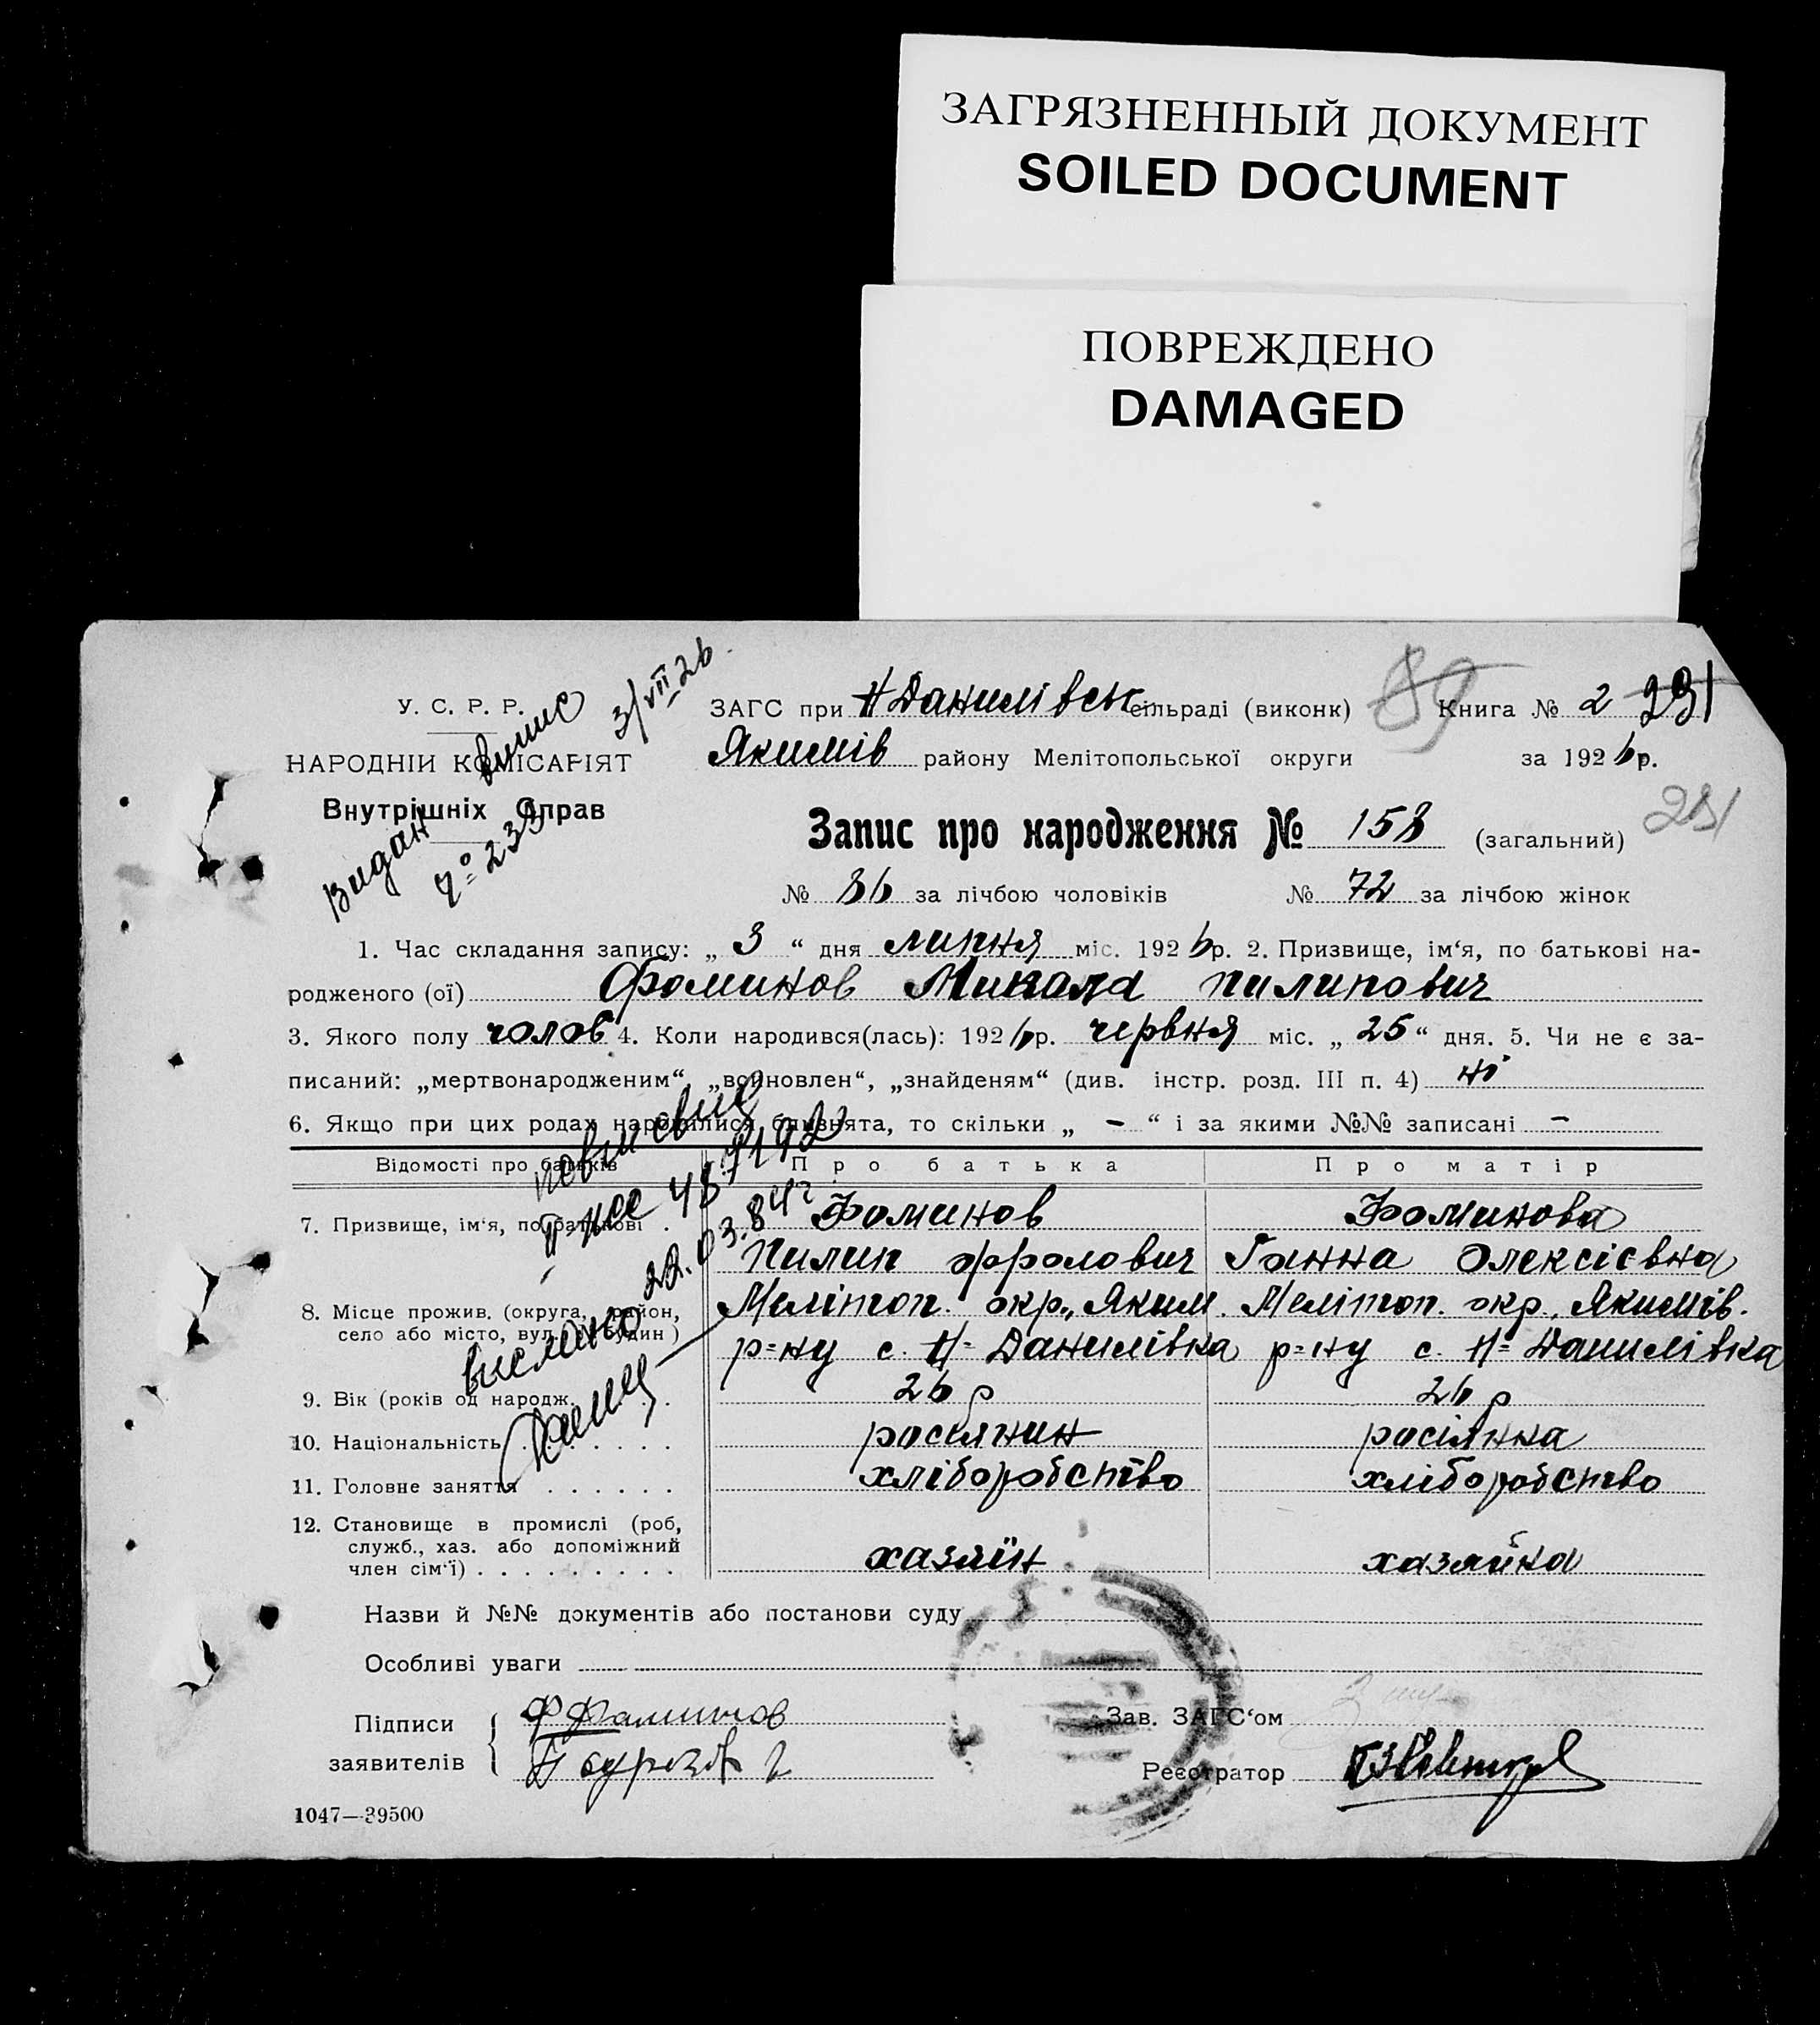 ЗАГРЯЗНЕННЫЙ ДОКУМЕНТ
SOILED DOCUMENT
ПОВРЕЖДЕНО
DAMAGED
У. С. Р. Р.
НАРОДНІЙ КОМІСАРІЯТ
Внутрішніх Справ
Видан випис
№ 233
3/VII 26
ЗАГС при Н Данилівськ сільраді (виконк) 89 Книга № 2 231
Якимів району Мелітопольської округи за 1926 р.
231
Запис про народження № 158 (загальний)
№ 86 за лічбою чоловіків № 72 за лічбою жінок
1. Час складання запису: „ 3 “ дня липня міс. 1926 р. 2. Призвище, ім‘я, по батькові на-
родженого (ої) Фоминов Микола Пилипович
3. Якого полу чолов 4. Коли народився(лась): 1926 р. червня міс. „ 25 “ дня. 5. Чи не є за-
писаний: „мертвонародженим“, „всиновлен“, „знайденям“ (див. інстр. розд. III п. 4) ні
6. Якщо при цих родах народилися близнята, то скільки „ – “ і за якими №№ записані –
Відомості про батьків Про батька Про матір
7. Призвище, ім‘я, по батькові . Фоминов Фоминова
Пилип Фролович Ганна Олексієвна
8. Місце прожив. (округа, район, Мелітоп. окр., Яким. Мелітоп. окр., Якимів.
село або місто, вул., будин) р=ну с. Н= Данилівка р=ну с. Н= Данилівка
9. Вік (років од народж. 26 р 26 р
10. Національність росіянин росіянка
11. Головне заняття хліборобство хліборобство
12. Становище в промислі (роб,
служб., хаз. або допоміжний
член сім‘ї) хазяїн хазяйка
22.03.84г
выслано
Назви й №№ документів або постанови суду
Особливі уваги
Підписи заявителів Ф Фаминов
Зав. ЗАГС‘ом
Реєстратор
1047—39500